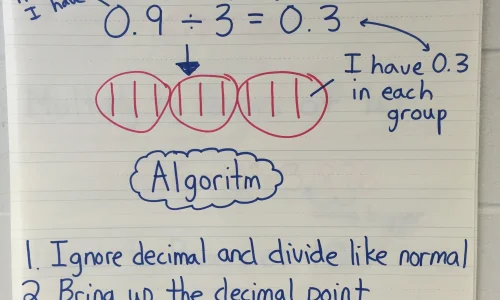 I have
0.9 ÷ 3 = 0.3
I have 0.3
in each
group
Algoritm
1. Ignore decimal and divide like normal
2 Bring up the decimal point